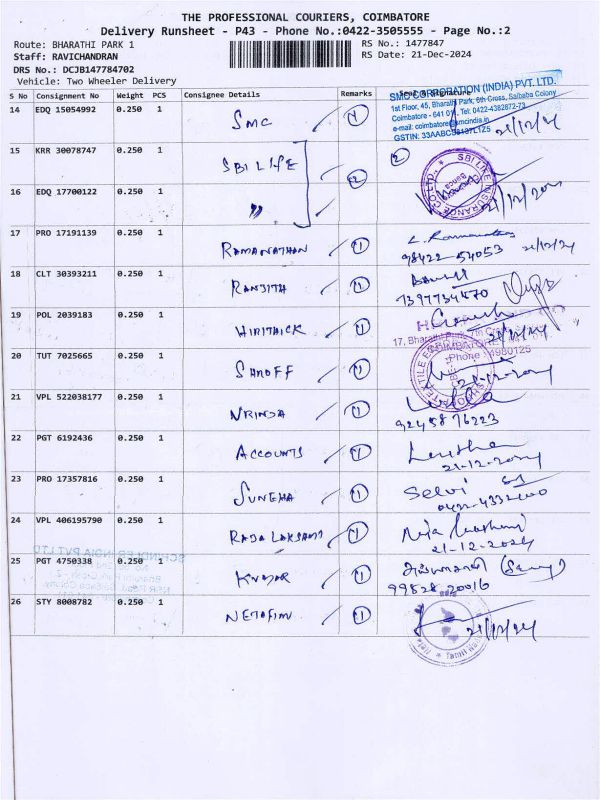 THE PROFESSIONAL COURIERS, COIMBATORE
Delivery Runsheet - P43 - Phone No.:0422-3505555 - Page No.:2
Route: BHARATHI PARK 1
RS No.: 1477847
Staff: RAVICHANDRAN
RS Date: 21-Dec-2024
DRS No.: DCJB147784702
Vehicle: Two Wheeler Delivery
S No Consignment No Weight PCS Consignee Details Remarks Signature
14 EDQ 15054992 0.250 1 SMC 1
SMC CORPORATION (INDIA) PVT. LTD.
1st Floor, 45, Bharathi Park, 6th Cross, Saibaba Colony
Coimbatore - 641 011. Tel: 0422-4382872-73
e-mail: coimbatore@smcindia.in
GSTIN: 21/12/24
15 KRR 30078747 0.250 1 SBI LIFE 2 2
SBI LIFE INSURANCE CO. LTD.
16 EDQ 17700122 0.250 1 "
17 PRO 17191139 0.250 1 RAMANATHAN 1 21/12/24
98422-54053
18 CLT 30393211 0.250 1 RANJITH 1
19 POL 2039183 0.250 1 HIRITHICK 1
17, Bharathi Park, 7th Cross
COIMBATORE
Phone : 4980125
20 TUT 7025665 0.250 1 SANOFF 1
21 VPL 522038177 0.250 1 1
92458 76223
22 PGT 6192436 0.250 1 ACCOUNTS 1
21-12-2024
23 PRO 17357816 0.250 1 SUNEHA 1 Selvi
24 VPL 406195790 0.250 1 RAJALAKSHMI 1
21-12-2024
25 PGT 4750338 0.250 1 KUMAR 1
99528-20016
SCHINDLER INDIA PVT LTD
26 STY 8008782 0.250 1 NETAFIM 1 21/12/24
Tamil Nadu